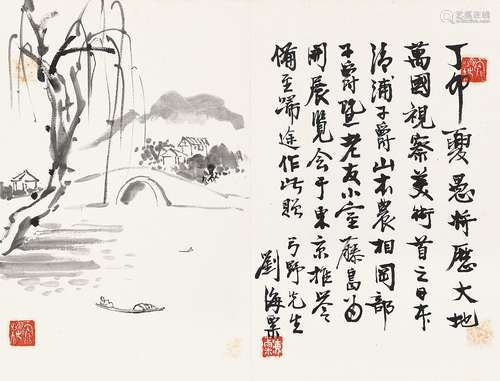 丁卯夏愚將歷大地
萬國視察美術首之日本
清浦子爵山本農相岡部
子爵暨老友小室藤島為
開展覽會于東京推崇
備至歸途作此贈 弓野先生
劉海粟